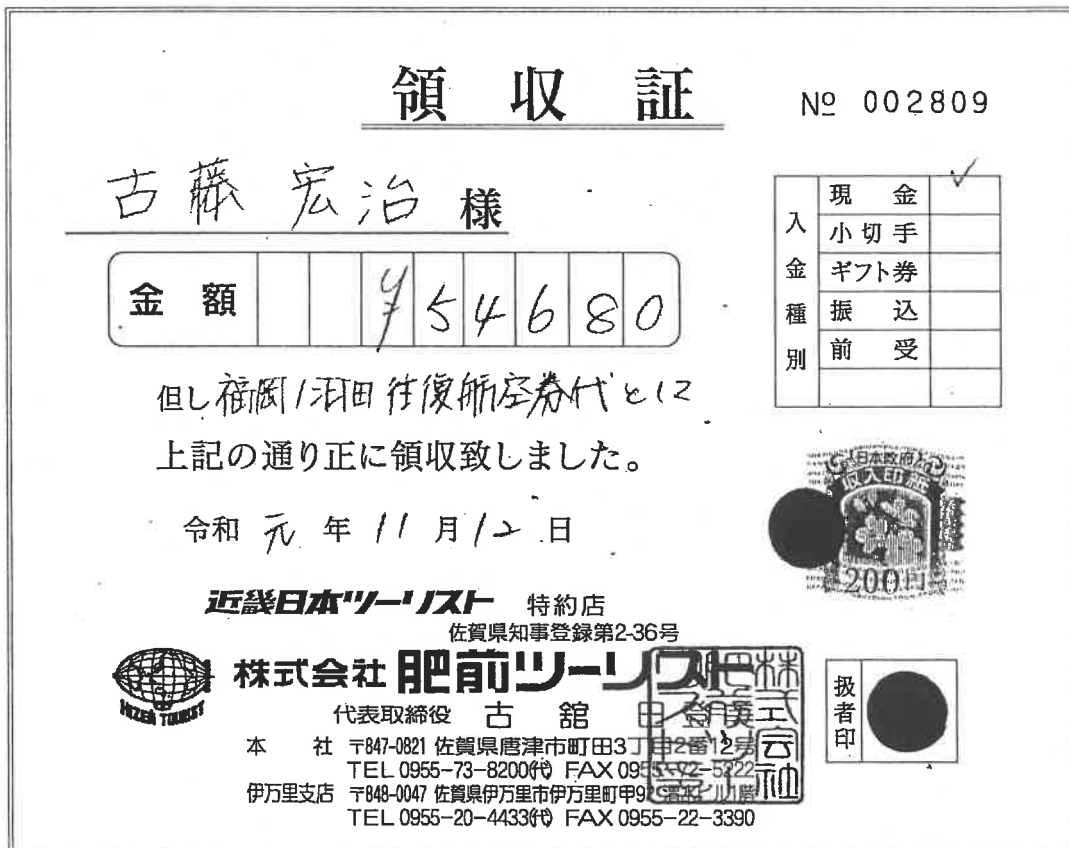 領収証
№ 002809
古藤 宏治 様
金額 ¥54680
但し 福岡/羽田 往復航空券代として
上記の通り正に領収致しました。
令和 元 年 11 月 12 日
入金種別
現金 ✓
小切手
ギフト券
振込
前受
日本政府
収入印紙
200円
近畿日本ツーリスト 特約店
佐賀県知事登録第2-36号
HIZEN TOURIST
株式会社 肥前ツーリスト
代表取締役 古舘
本社 〒847-0821 佐賀県唐津市町田3丁目2番12号
TEL 0955-73-8200㈹ FAX 0955-72-5222
伊万里支店 〒848-0047 佐賀県伊万里市伊万里町甲
TEL 0955-20-4433㈹ FAX 0955-22-3390
扱者印